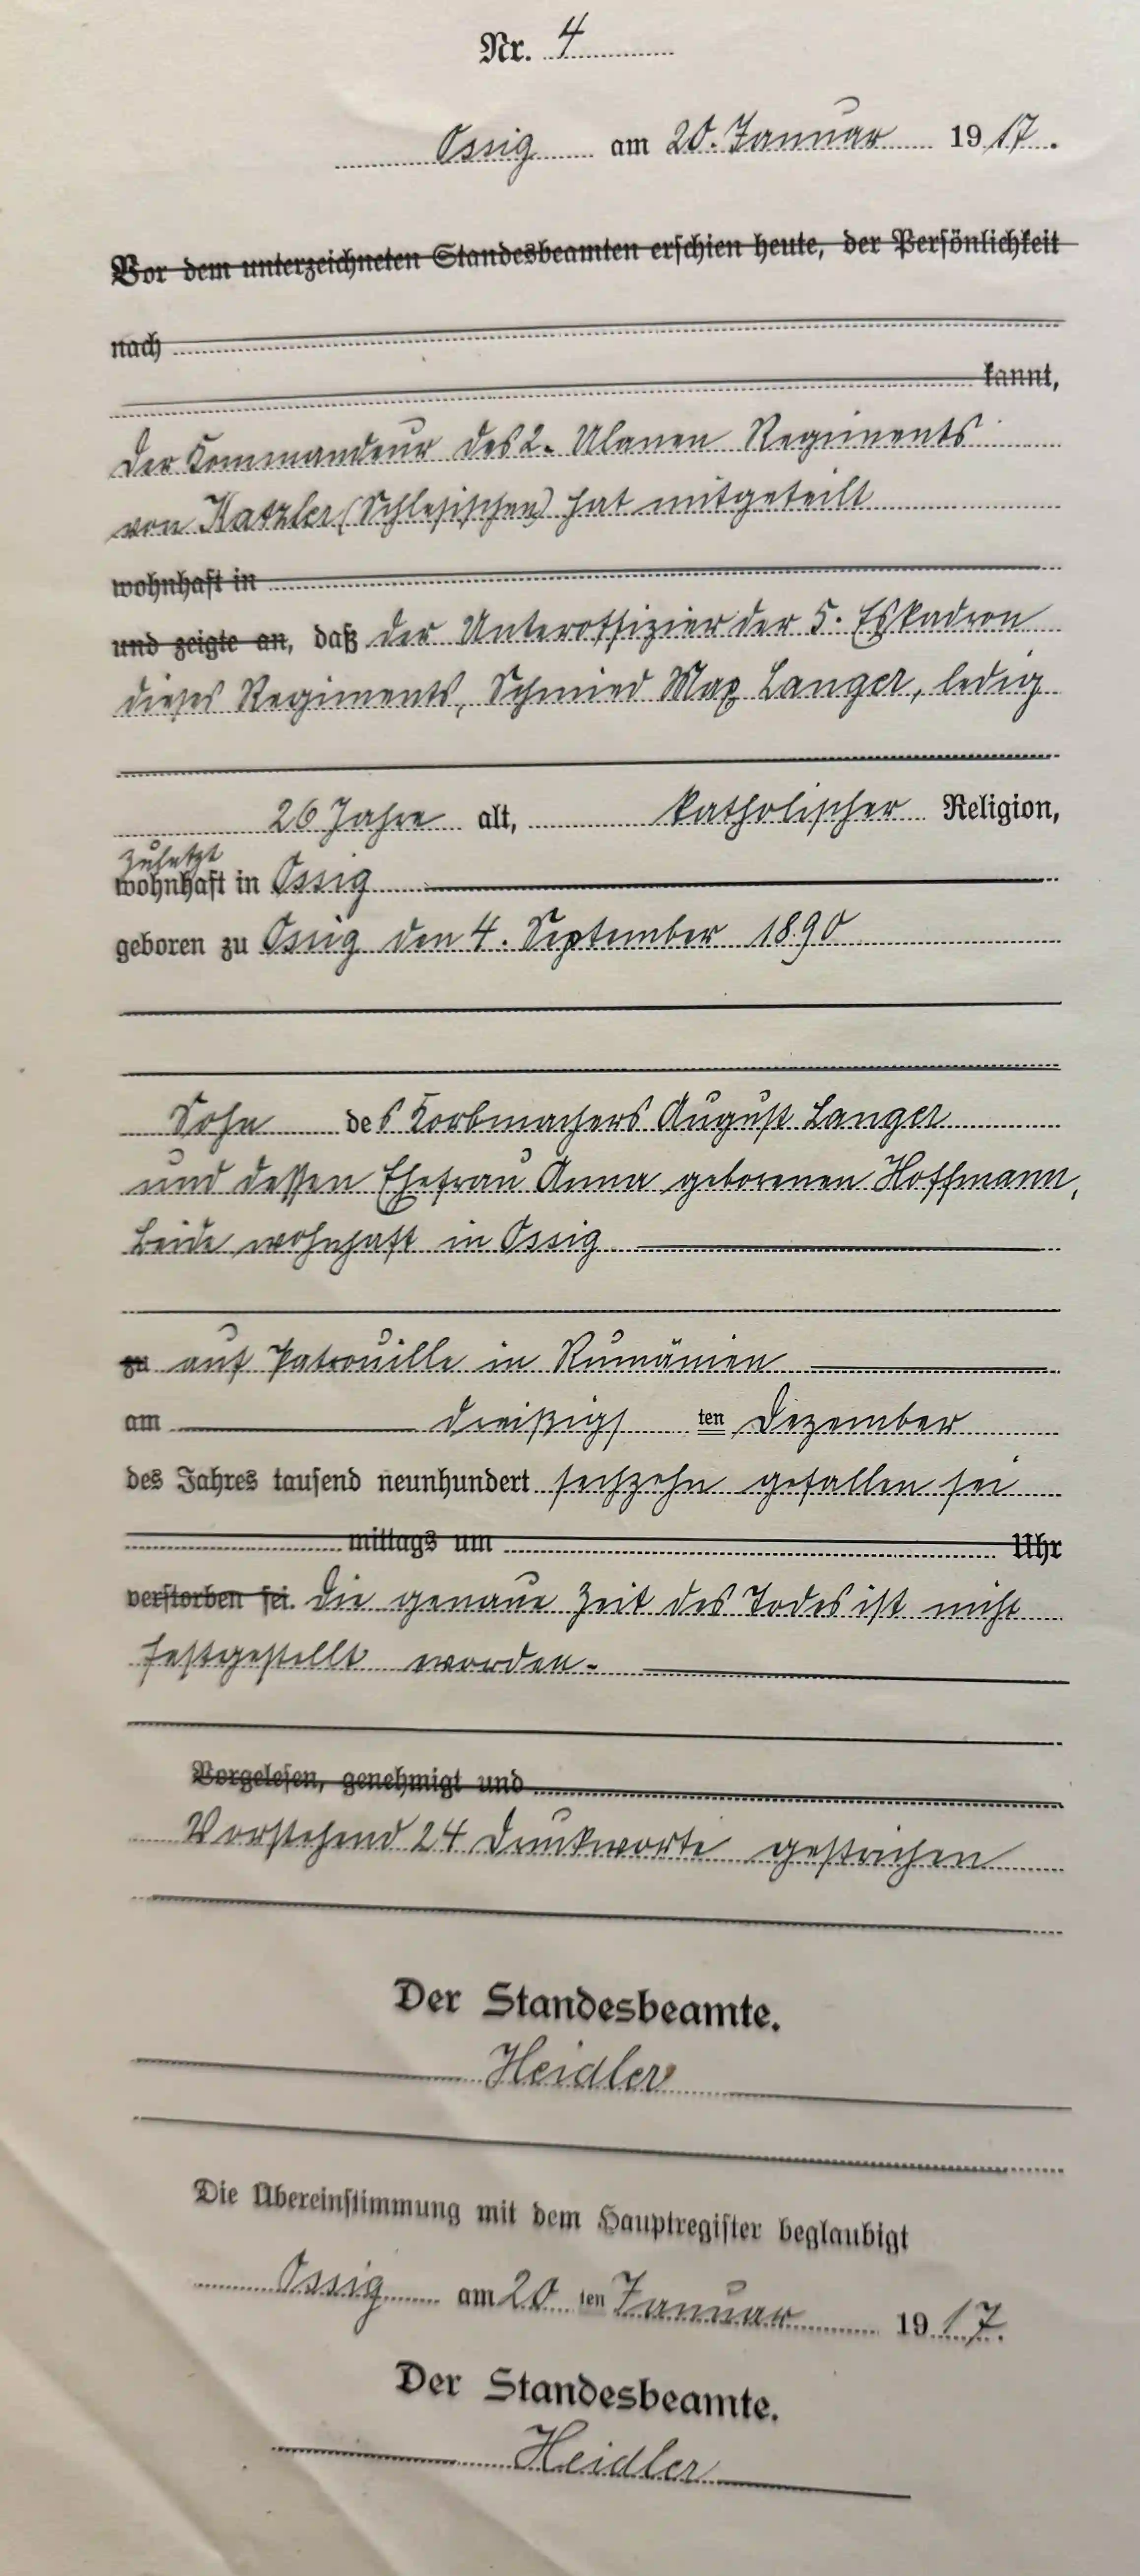 Nr. 4
Ossig am 20. Januar 1917.
Vor dem unterzeichneten Standesbeamten erschien heute, der Persönlichkeit
nach
kannt,
der Kommandeur des 2. Ulanen Regiments
von Katzler (Schlesischen) hat mitgeteilt
wohnhaft in
und zeigte an, daß der Unteroffizier der 5. Eskadron
dieses Regiments, Schmied Max Langer, ledig
26 Jahre alt, katholischer Religion,
zuletzt
wohnhaft in Ossig
geboren zu Ossig den 4. September 1890
Sohn des Korbmachers August Langer
und dessen Ehefrau Anna geborenen Hoffmann,
beide wohnhaft in Ossig
zu auf Patrouille in Rumänien
am dreißigsten Dezember
des Jahres tausend neunhundert sechzehn gefallen sei
mittags um Uhr
verstorben sei. Die genaue Zeit des Todes ist nicht
festgestellt worden.
Vorgelesen, genehmigt und
Vorstehend 24 Druckworte gestrichen
Der Standesbeamte.
Heidler
Die Übereinstimmung mit dem Hauptregister beglaubigt
Ossig am 20 ten Januar 1917.
Der Standesbeamte.
Heidler